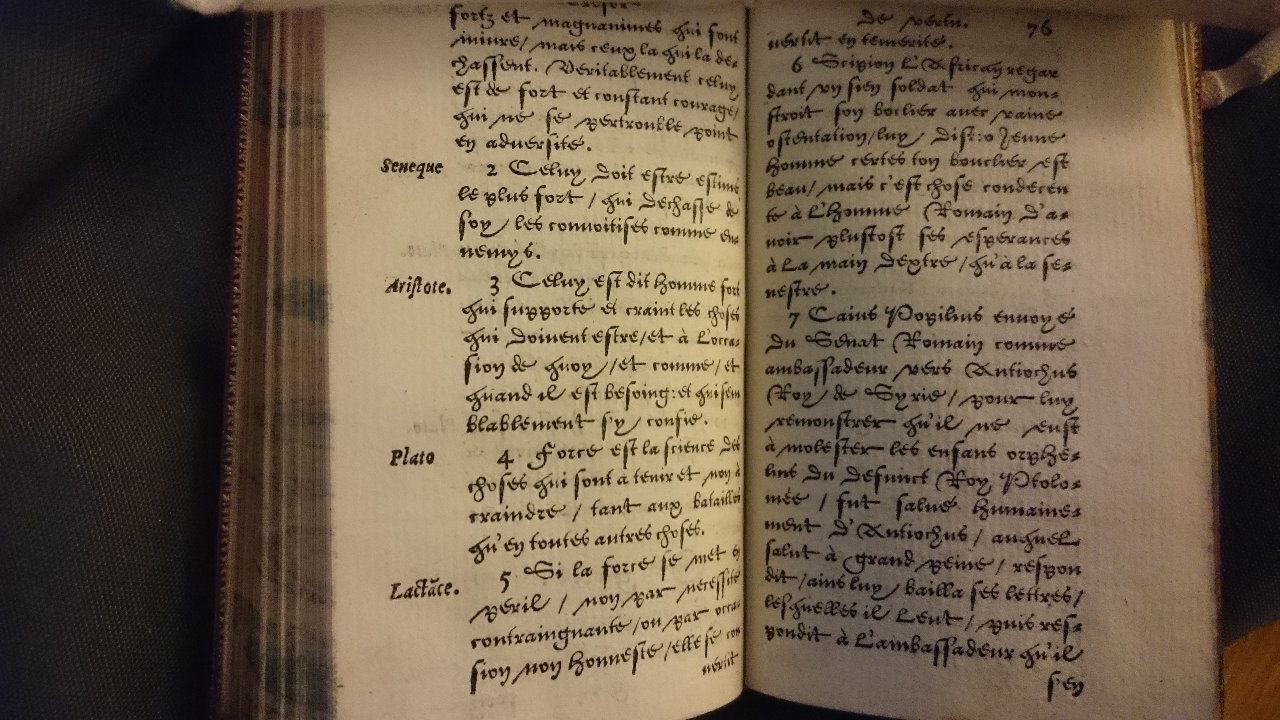 Tresor
fortz et magnanimes qui font
iniure / mais ceux la qui la de-
chassent. Veritablement celuy
est de fort et constant courage /
qui ne se pertrouble point
en adversité.
Seneque
2 Celuy doit estre estimé
le plus fort / qui dechasse de
soy / les convoitises comme en-
nemys.
Aristote.
3 Celuy est dit homme fort
qui supporte et craint les choses
qui doivent estre / et à l'occa-
sion de quoy / et comme / et
quand il est besoing: et qui sem
blablement s'y confie.
Plato
4 Force est la science des
choses qui sont a tenir et non à
craindre / tant aux batailles
qu'en toutes autres choses.
Lactāce.
5 Si la force se met en
peril / non par necessité
contraingnante / ou par occa-
sion non honneste / elle se con
vertit
de vertu. 76
vertit en temerité.
6 Scipion L'Africain regar
dant un sien soldat qui mon-
stroit son boclier avec vaine
ostentation / luy dist: o Jeune
homme certes ton bouclier est
beau / mais c'est chose condecen
te à L'homme Romain d'a-
voir plustost ses esperances
à La main dextre / qu'à la se-
nestre.
7 Caius Popilius envoyé
du Senat Romain comme
ambassadeur vers Antiochus
Roy de Syrie / pour luy
remonstrer qu'il ne eust
à molester les enfans orphe-
lins du defunct Roy Ptolo-
mée / fut salué humaine-
ment d'Antiochus / auquel
salut à grand peine / respon
dit / ains luy bailla ses lettres /
lesquelles il Leut / puis res-
pondit à L'ambassadeur qu'il
s'en